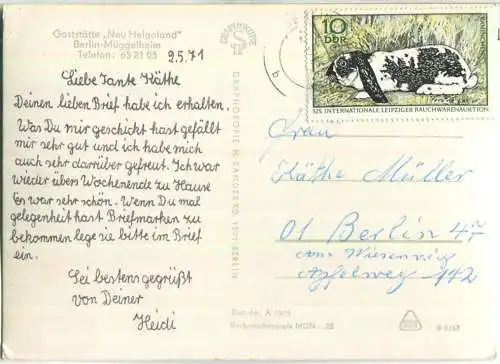 Gaststätte „Neu Helgoland"
Berlin-Müggelheim
Telefon: 65 21 05
9.5.71
Liebe Tante Käthe
Deinen lieben Brief habe ich erhalten.
Was Du mir geschickt hast gefällt
mir sehr gut und ich habe mich
auch sehr darrüber gefreut. Ich war
wieder übers Wochenende zu Hause
Es war sehr schön. Wenn Du mal
gelegenheit hast Briefmarken zu
bekommen lege sie bitte im Brief
ein.
Sei bestens gegrüßt
von Deiner
Heidi
GRAPHOKOPIE
GRAPHOKOPIE H. SANDER KG, 1071 BERLIN
10
DDR
525. INTERNATIONALE LEIPZIGER RAUCHWARENAUKTION
Frau
Käthe Müller
01 Berlin 47
Am Wiesenweg
Apfelweg 142
Best.-Nr. A 1801
Verbraucherpreis MDN -,25